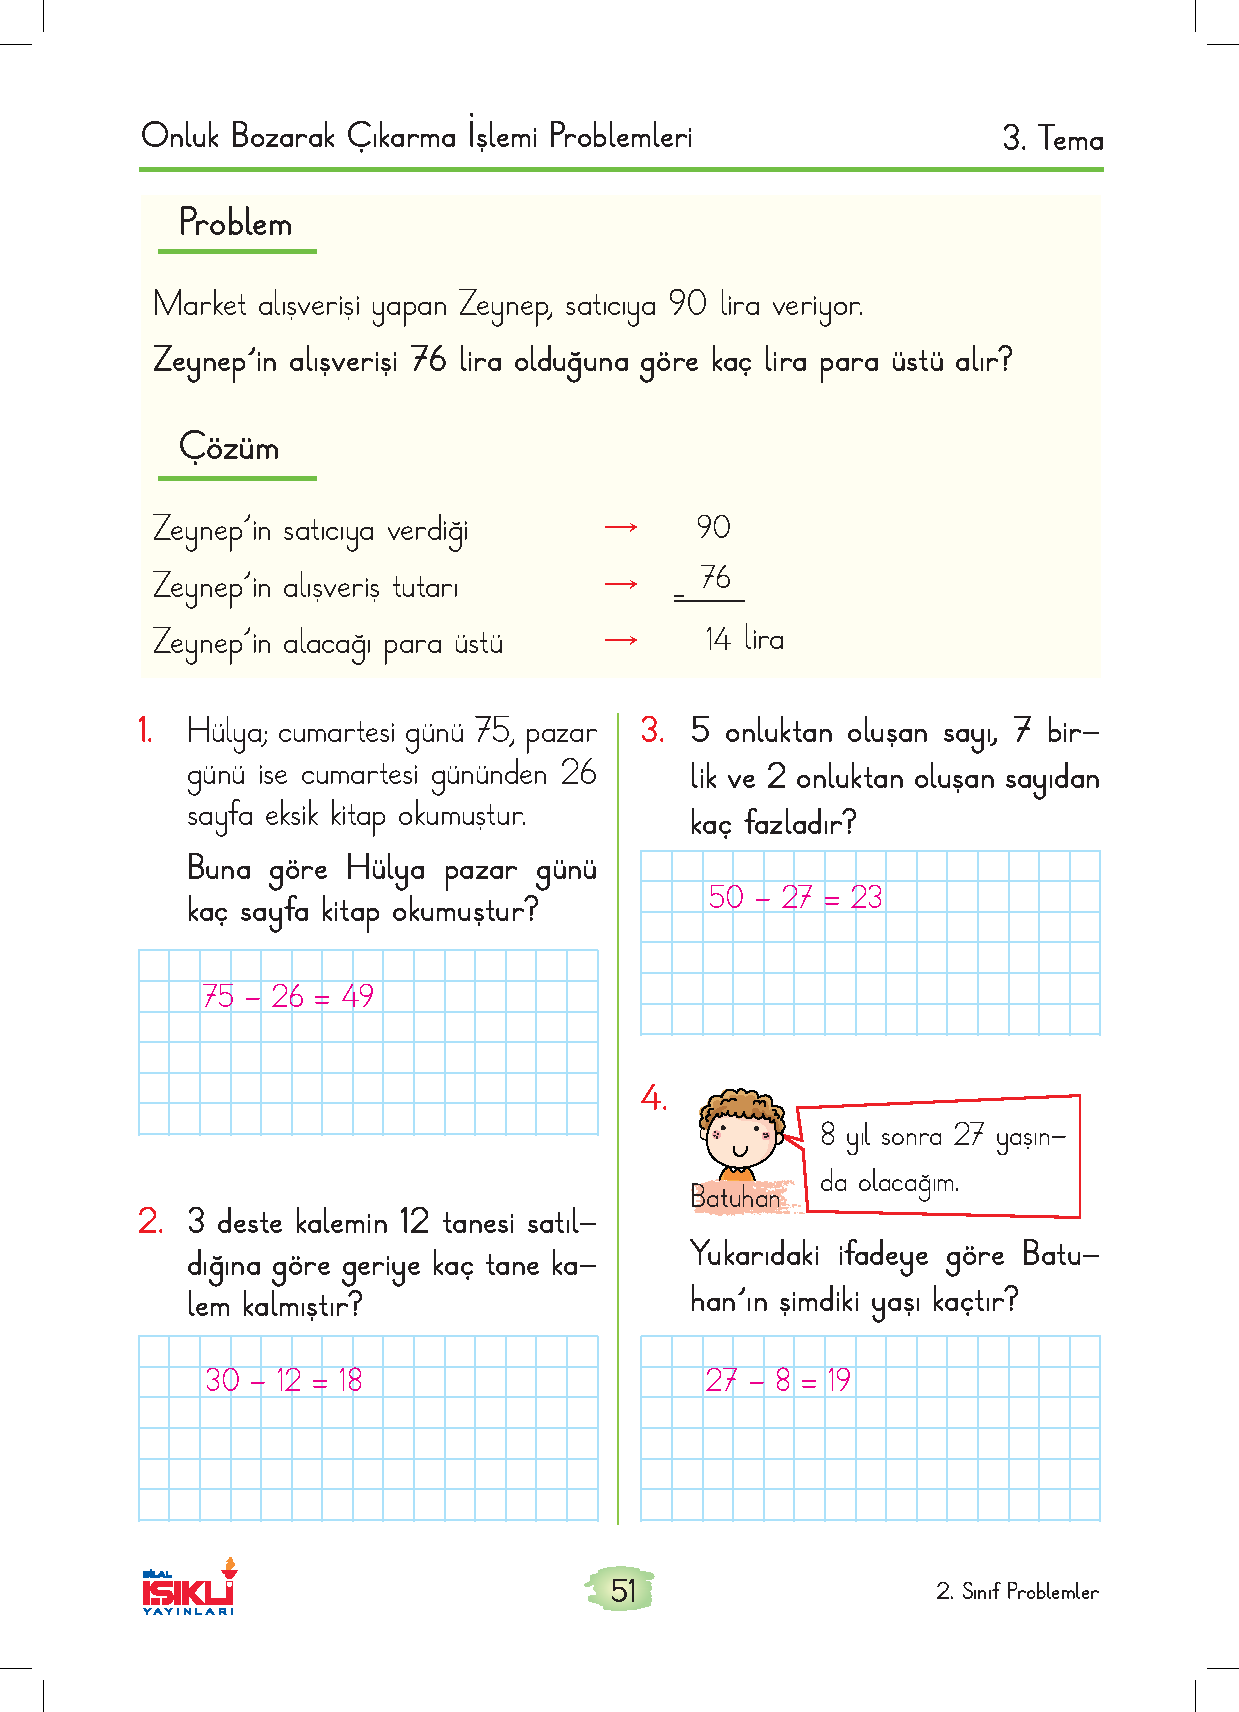 Onluk Bozarak Çıkarma İşlemi Problemleri
3. Tema
Problem
Market alışverişi yapan Zeynep, satıcıya 90 lira veriyor.
Zeynep'in alışverişi 76 lira olduğuna göre kaç lira para üstü alır?
Çözüm
Zeynep'in satıcıya verdiği → 90
Zeynep'in alışveriş tutarı → 76
-
Zeynep'in alacağı para üstü → 14 lira
1. Hülya; cumartesi günü 75, pazar
günü ise cumartesi gününden 26
sayfa eksik kitap okumuştur.
Buna göre Hülya pazar günü
kaç sayfa kitap okumuştur?
75 - 26 = 49
2. 3 deste kalemin 12 tanesi satıl-
dığına göre geriye kaç tane ka-
lem kalmıştır?
30 - 12 = 18
3. 5 onluktan oluşan sayı, 7 bir-
lik ve 2 onluktan oluşan sayıdan
kaç fazladır?
50 - 27 = 23
4.
8 yıl sonra 27 yaşın-
da olacağım.
Batuhan
Yukarıdaki ifadeye göre Batu-
han'ın şimdiki yaşı kaçtır?
27 - 8 = 19
BİLAL
IŞIKLI
YAYINLARI
51
2. Sınıf Problemler